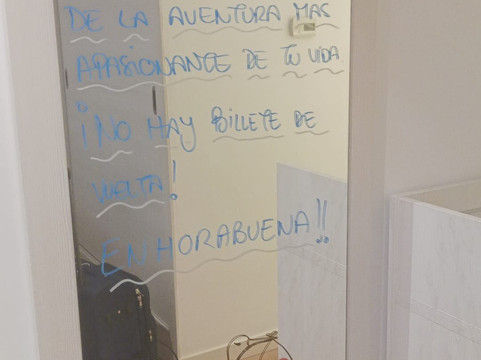 DE LA AVENTURA MAS
APASIONANTE DE TU VIDA
¡NO HAY BILLETE DE
VUELTA!
ENHORABUENA!!